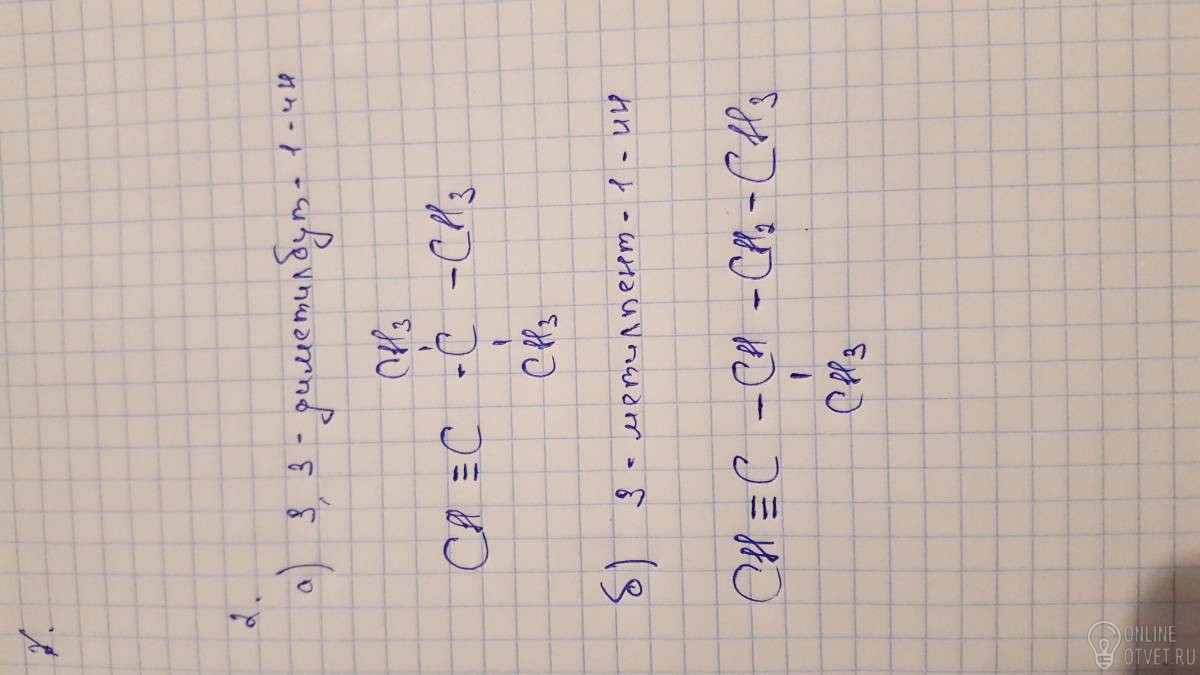 2.
а) 3,3 - диметилбут - 1 - ин
CH3
CH ≡ C - C - CH3
CH3
б) 3 - метилпент - 1 - ин
CH ≡ C - CH - CH2 - CH3
CH3
ONLINE
OTVET.RU